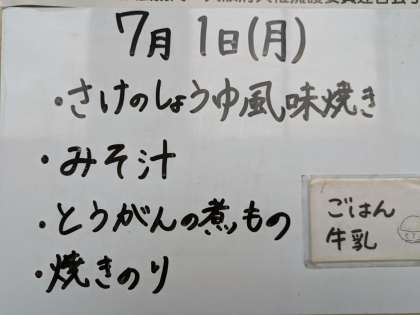 7月1日(月)
・さけのしょうゆ風味焼き
・みそ汁
・とうがんの煮もの
・焼きのり
ごはん
牛乳